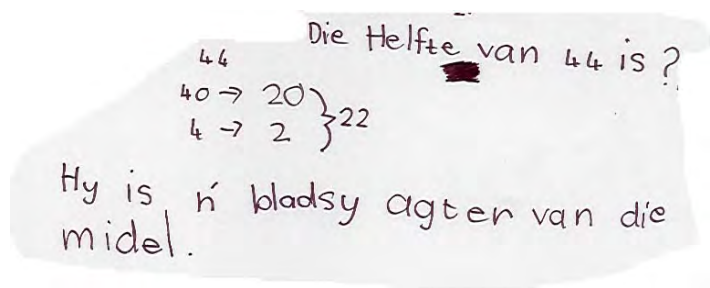 Die Helfte van 44 is?
44
40 → 20
4 → 2 } 22
Hy is ń bladsy agter van die
midel.